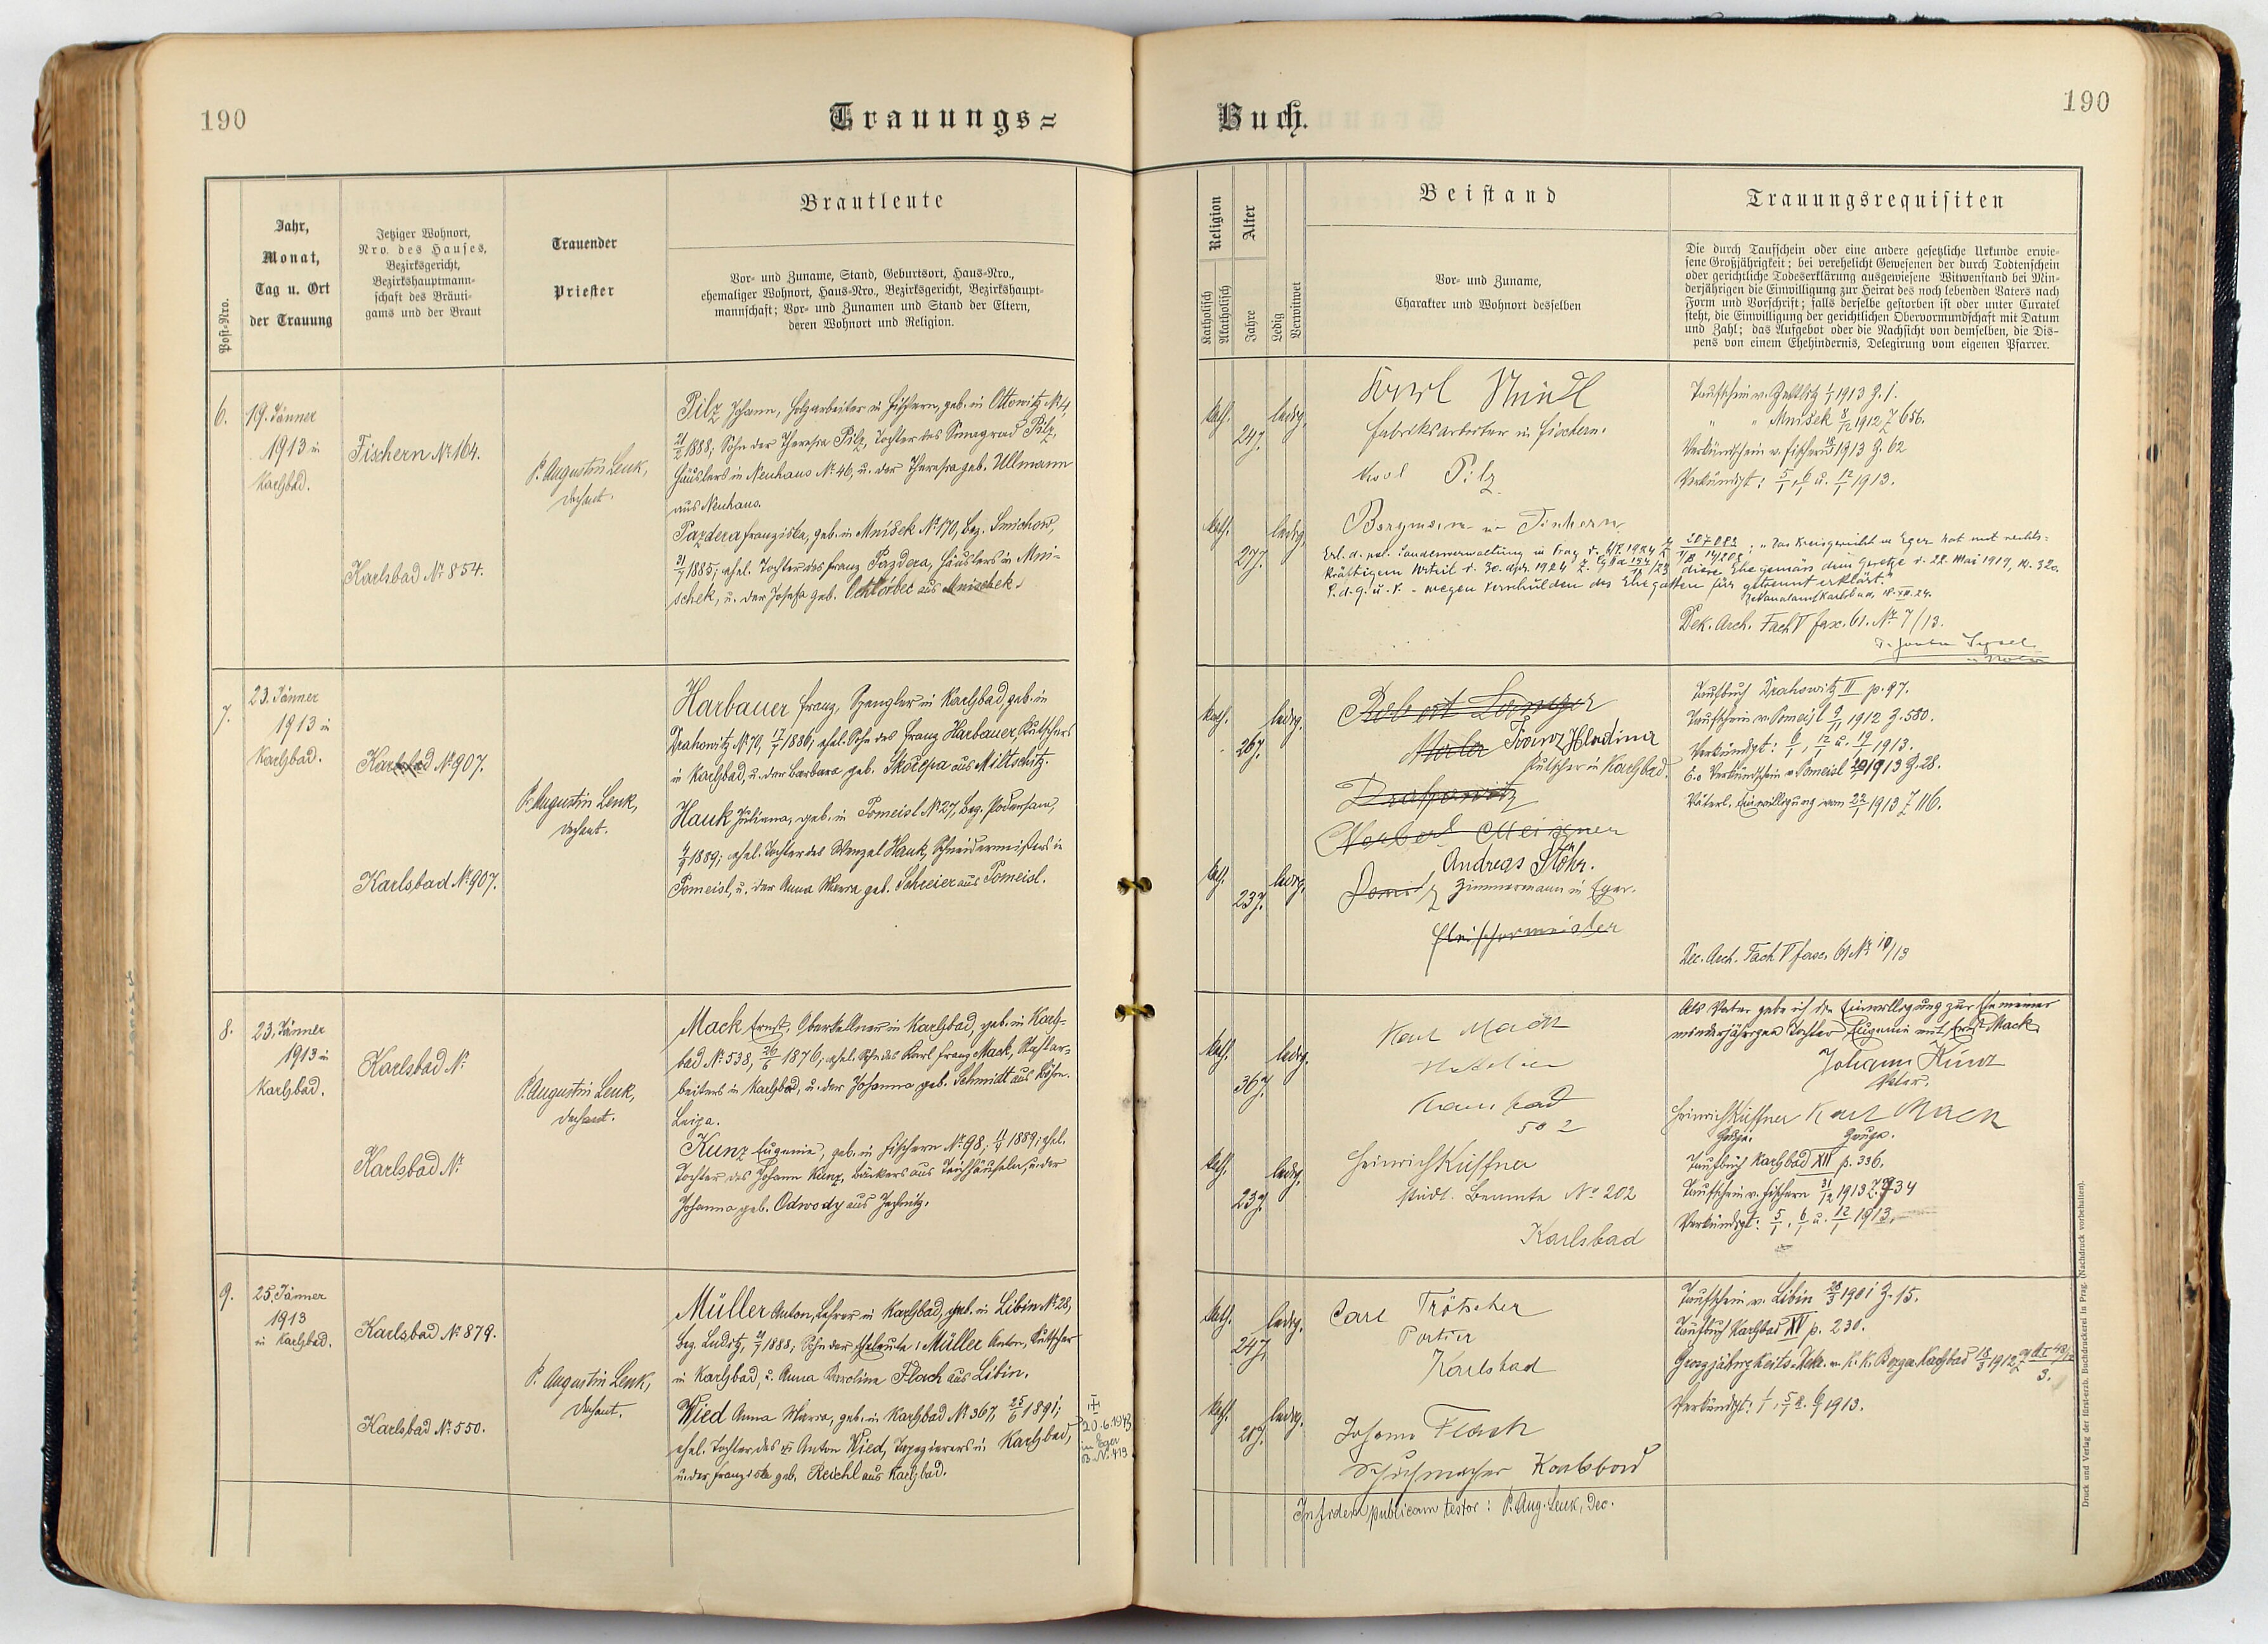 190
Trauungs=
Post-Nro.
Jahr,
Monat,
Tag u. Ort
der Trauung
Jetziger Wohnort,
Nro. des Hauses,
Bezirksgericht,
Bezirkshauptmann=
schaft des Bräuti=
gams und der Braut
Trauender
Priester
Brautleute
Vor= und Zuname, Stand, Geburtsort, Haus=Nro.,
ehemaliger Wohnort, Haus=Nro., Bezirksgericht, Bezirkshaupt=
mannschaft; Vor= und Zunamen und Stand der Eltern,
deren Wohnort und Religion.
6.
19. Jänner
1913 in
Karlsbad.
Fischern No 164.
Karlsbad No 854.
P. Augustin Lenk,
Dechant.
Pilz Johann, Holzarbeiter in Fischern, geb. in Ottowitz No 4,
21/2 1888; Sohn der Theresia Pilz, Tochter des Pilz,
Häuslers in Neuhaus No 46, u. der Theresia geb. Ullmann
aus Neuhaus.
Pazdera Franziska, geb. in Mnišek No 170, Bez. Smichow,
31/7 1885; ehel. Tochter des Franz Pazdera, Häuslers in Mni-
schek, u. der Josefa geb. aus Mnischek.
7.
23. Jänner
1913 in
Karlsbad.
Karlsbad No 907.
Karlsbad No 907.
P. Augustin Lenk,
Dechant.
Harbauer Franz, Spengler in Karlsbad, geb. in
Drahowitz No 70, 17/7 1886; ehel. Sohn des Franz Harbauer, Kutschers
in Karlsbad, u. der Barbara geb. Skočepa aus Miltschitz.
Hauk Juliana, geb. in Pomeisl No 27, Bez. Podersam,
1889; ehel. Tochter des Wenzel Hauk, Schneidermeisters in
Pomeisl, u. der Anna Maria geb. Schreier aus Pomeisl.
8.
23. Jänner
1913 in
Karlsbad.
Karlsbad No
Karlsbad No
P. Augustin Lenk,
Dechant.
Mack Ernst, Oberkellner in Karlsbad, geb. in Karls-
bad No 538, 26/6 1876; ehel. Sohn des Karl Franz Mack,
beiters in Karlsbad, u. der Johanna geb. Schmidt aus Böhm.
Leipa.
Kunz Eugenie, geb. in Fischern No 98; 1889; ehel.
Tochter des Johann Kunz, Bäckers aus Teichhäuseln, u. der
Johanna geb. Odwody aus Jechnitz.
9.
25. Jänner
1913
in Karlsbad.
Karlsbad No 879.
Karlsbad No 550.
P. Augustin Lenk,
Dechant.
Müller Anton, Lehrer in Karlsbad, geb. in Libin No 28,
Bez. Luditz, 1888; Sohn der Eheleute: Müller Anton, Kutscher
in Karlsbad, u. Anna Karolina Flach aus Libin.
Wied Anna Maria, geb. in Karlsbad No 367, 25/6 1891;
ehel. Tochter des Anton Wied, Tapezierers in Karlsbad,
u. der Franziska geb. Reichl aus Karlsbad.
20.6.1943
in Eger
B. No 419
Buch.
190
Religion
Katholisch
Akatholisch
Alter
Jahre
Ledig
Verwitwet
Beistand
Vor= und Zuname,
Charakter und Wohnort desselben
Trauungsrequisiten
Die durch Taufschein oder eine andere gesetzliche Urkunde erwie=
sene Großjährigkeit; bei verehelicht Gewesenen der durch Todtenschein
oder gerichtliche Todeserklärung ausgewiesene Witwenstand bei Min=
derjährigen die Einwilligung zur Heirat des noch lebenden Vaters nach
Form und Vorschrift; falls derselbe gestorben ist oder unter Curatel
steht, die Einwilligung der gerichtlichen Obervormundschaft mit Datum
und Zahl; das Aufgebot oder die Nachsicht von demselben, die Dis=
pens von einem Ehehindernis, Delegirung vom eigenen Pfarrer.
kath.
24 J.
ledig.
Karl
Fabriksarbeiter in Fischern.
Karl Pilz
Bergmann in Fischern
kath.
27 J.
ledig.
Taufschein v. Zettlitz 1913 Z. 1.
" " Mnišek 8/12 1912 Z 656.
Verkündschein v. Fischern 1913 Z. 62
Verkündigt: 5/1, 6/1 u. 12/1 1913.
Erl. d. pol. Landesverwaltung in Prag v. 1924 Z. 207.082; "Das Kreisgericht in Eger hat mit rechts-
kräftigem Urteil v. 30. Apr. 1924 diese Ehe gemäss dem Gesetze v. 22. Mai 1919, N. 320.
S.d.G.u.V. - wegen Verschulden des Ehegatten für getrennt erklärt."
Dekanalamt Karlsbad, 18.XII.24.
Dek. Arch. Fach V fasc. 61. No 7/13.
kath.
26 J.
ledig.
Franz Hladina
Kutscher in Karlsbad.
Andreas Stöhr.
Zimmermann in Eger.
Fleischermeister
kath.
23 J.
ledig.
Taufbuch Drahowitz II p. 97.
Taufschein v. Pomeisl 9/11 1912 Z. 580.
Verkündigt: 6/1, 12/1 u. 19/1 1913.
Verkündschein v. Pomeisl 1913 Z. 28.
Väterl. Einwilligung vom 22/1 1913 Z 116.
Dec. Arch. Fach V fasc. 61 No 10/13
kath.
36 J.
ledig.
Karl Mack
Hotelier
Karlsbad
502
Heinrich Küffner
städt. Beamte No 202
Karlsbad
kath.
23 J.
ledig.
Als Vater gebe ich die Einwilligung zur Ehe meiner
minderjährigen Tochter Eugenie mit Ernst Mack
Johann Kunz
Vater.
Heinrich Küffner Karl Mack
Zeuge. Zeuge.
Taufbuch Karlsbad XII p. 336.
Taufschein v. Fischern 31/12 1913 Z. 734
Verkündigt: 5/1, 6/1 u. 12/1 1913.
kath.
24 J.
ledig.
Carl Trötscher
Portier
Karlsbad
Johann Flach
Schuhmacher Karlsbad
kath.
ledig.
Taufschein v. Libin 28/3 1901 Z. 15.
Taufbuch Karlsbad XV p. 230.
Grossjährigkeits-Dekr. v. k. k. Bezger. Karlsbad 1912
Verkündigt: 1/1, 5/1 u. 6/1 1913.
In fidem publicam testor: P. Aug. Lenk, Dec.
Druck und Verlag der fürst-erzb. Buchdruckerei in Prag. (Nachdruck vorbehalten).